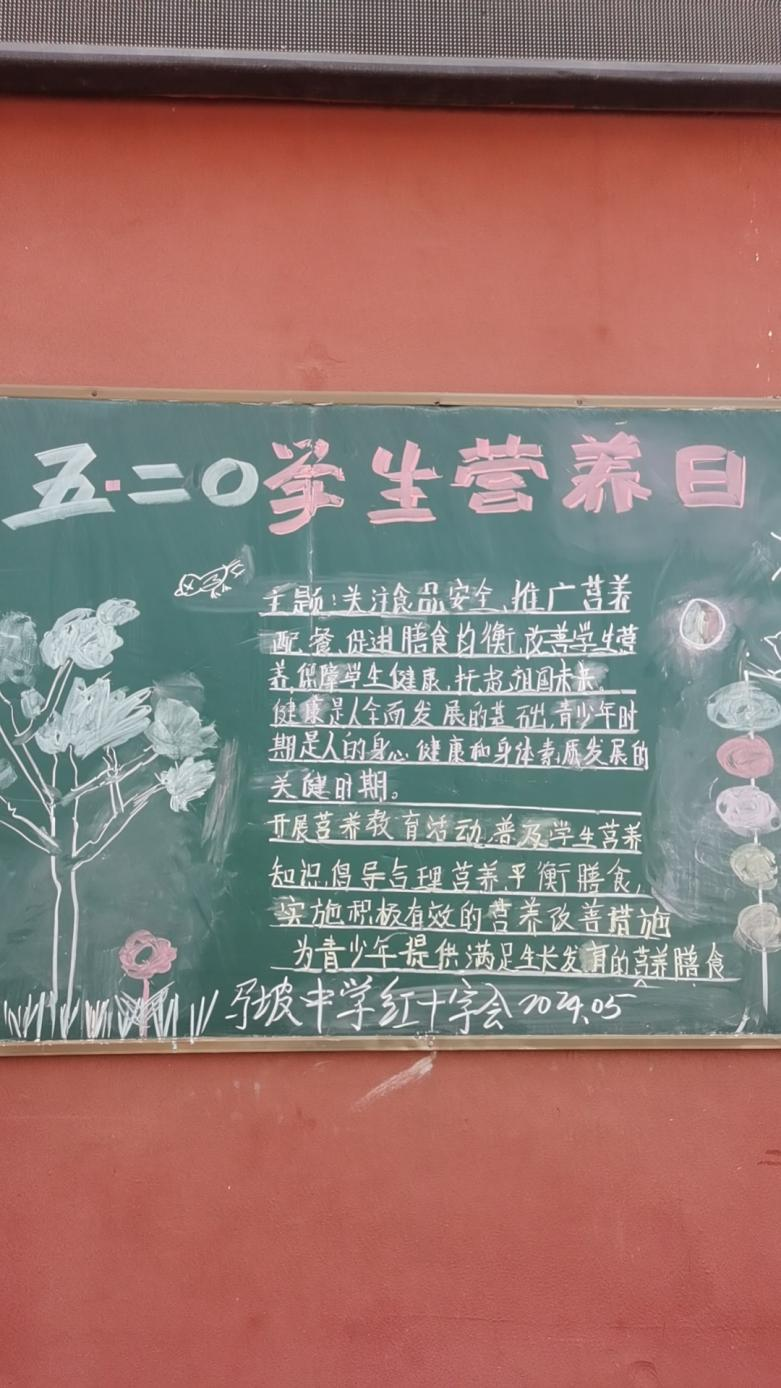 五·二〇学生营养日
主题:关注食品安全,推广营养
配餐,促进膳食均衡,改善学生营
养,保障学生健康,托起祖国未来。
健康是人全面发展的基础,青少年时
期是人的身心健康和身体素质发展的
关键时期。
开展营养教育活动,普及学生营养
知识,倡导合理营养,平衡膳食,
实施积极有效的营养改善措施
为青少年提供满足生长发育的营养膳食
马坡中学红十字会2024.05